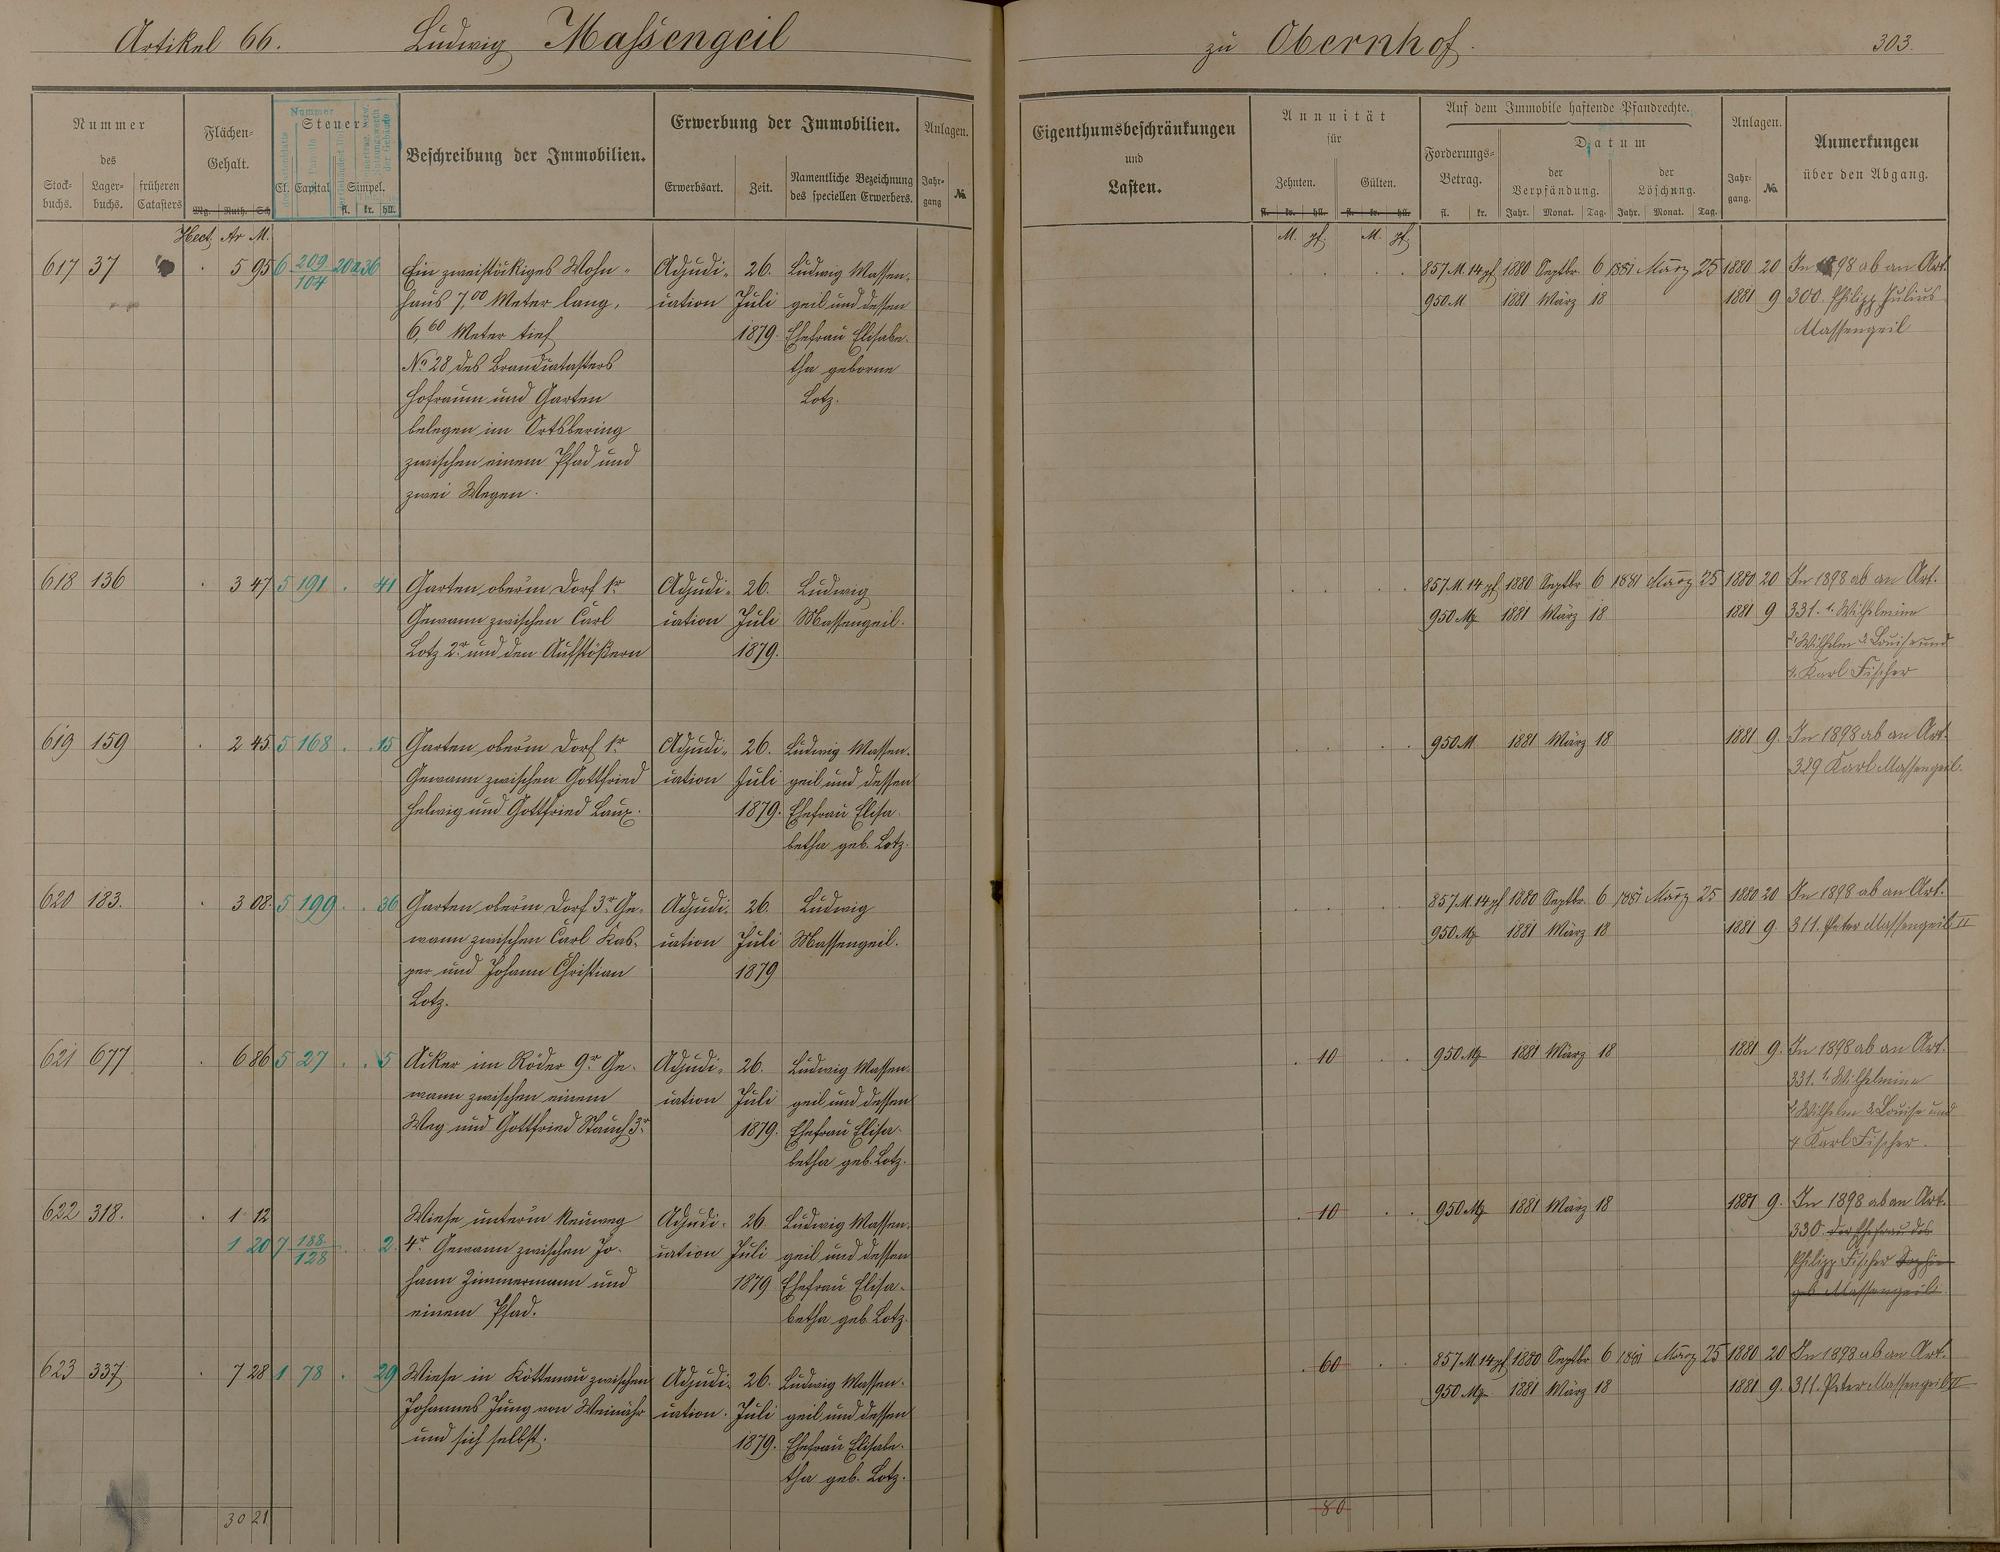 Artikel 66. Ludwig Massengeil zu Obernhof. 303.
Nummer
des
Stock-
buchs.
Lager-
buchs.
früheren
Catasters
Flächen-
Gehalt.
Mg. Ruth. Sch
Nummer
Steuer-
Cl. Capital Simpel.
fl. kr. hll.
Beschreibung der Immobilien.
Erwerbung der Immobilien.
Erwerbsart. Zeit.
Namentliche Bezeichnung
des speciellen Erwerbers.
Anlagen.
Jahr-
gang
No.
Eigenthumsbeschränkungen
und
Lasten.
Annuität
für
Zehnten. Gülten.
fl. kr. hll. fl. kr. hll.
Auf dem Immobile haftende Pfandrechte.
Forderungs-
Betrag.
fl. kr.
Datum
der
Verpfändung.
Jahr. Monat. Tag.
der
Löschung.
Jahr. Monat. Tag.
Anlagen.
Jahr-
gang.
No.
Anmerkungen
über den Abgang.
Hect. Ar M.
M. pf. M. pf.
617 37 5 95 6 209/104 20a 36
Ein zweistöckiges Wohn-
haus 7,00 Meter lang,
6,60 Meter tief
No 28 des Brandcatasters
Hofraum und Garten
belegen im Ortsbering
zwischen einem Pfad und
zwei Wegen.
Adjudi-
cation
26.
Juli
1879.
Ludwig Massen-
geil und dessen
Ehefrau Elisabe-
tha geborne
Lotz.
857 M. 14 pf 1880 Septbr. 6 1881 März 25 1880 20
950 M 1881 März 18 1881 9
In 1898 ab an Art.
300. Philipp Julius
Massengeil
618 136 3 47 5 191 41
Garten oberm Dorf 1r
Gewann zwischen Carl
Lotz 2r und den Aufstößern
Adjudi-
cation
26.
Juli
1879.
Ludwig
Massengeil.
857 M. 14 pf 1880 Septbr 6 1881 März 25 1880 20
950 M 1881 März 18 1881 9
In 1898 ab an Art.
331. 1. Wilhelmine
2. Wilhelm 3. Louise und
4. Karl Fischer
619 159 2 45 5 168 15
Garten oberm Dorf 1r
Gewann zwischen Gottfried
Helwig und Gottfried Laux.
Adjudi-
cation
26.
Juli
1879.
Ludwig Massen-
geil und dessen
Ehefrau Elisa-
betha geb. Lotz.
950 M 1881 März 18 1881 9.
In 1898 ab an Art.
329 Karl Massengeil.
620 183. 3 08. 5 199 36
Garten oberm Dorf 3r Ge-
wann zwischen Carl Kas-
per und Johann Christian
Lotz.
Adjudi-
cation
26.
Juli
1879
Ludwig
Massengeil.
857 M. 14 pf 1880 Septbr. 6 1881 März 25 1880 20
950 M 1881 März 18 1881 9.
In 1898 ab an Art.
311. Peter Massengeil II
621 677 6 86 5 27 5
Acker im Röder 9r Ge-
wann zwischen einem
Weg und Gottfried Stauch 3r
Adjudi-
cation
26.
Juli
1879.
Ludwig Massen-
geil und dessen
Ehefrau Elisa-
betha geb. Lotz.
10
950 M 1881 März 18 1881 9.
In 1898 ab an Art.
331. 1. Wilhelmine
2. Wilhelm 3. Louise und
4. Karl Fischer.
622 318. 1 12
1 20 7 188/128 2.
Wiese unterm Neuweg
4r Gewann zwischen Jo-
hann Zimmermann und
einem Pfad.
Adjudi-
cation
26
Juli
1879
Ludwig Massen-
geil und dessen
Ehefrau Elisa-
betha geb. Lotz.
10
950 M 1881 März 18 1881 9.
In 1898 ab an Art.
330. der Ehefrau des
Philipp Fischer Sophie
geb. Massengeil.
623 337 7 28 1 78 29
Wiese in Köttenau zwischen
Johannes Jung von Weinähr
und sich selbst.
Adjudi-
cation.
26.
Juli
1879.
Ludwig Massen-
geil und dessen
Ehefrau Elisabe-
tha geb. Lotz.
60
857 M 14 pf 1880 Septbr 6 1881 März 25 1880 20
950 M 1881 März 18 1881 9.
In 1898 ab an Art.
311. Peter Massengeil II
30 21
80